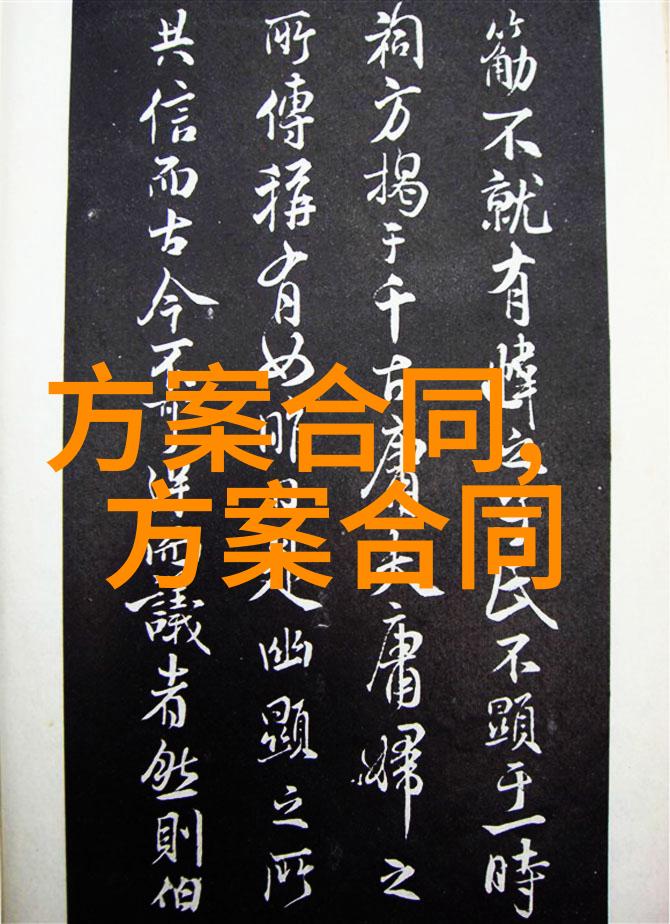 方案合同,
方案合同
不就有之氏不顯于一時
祠方揭于千古庸夫庸婦之
所傳稱有如昨是幽顯之所
共信而古今不得而議者然則伯